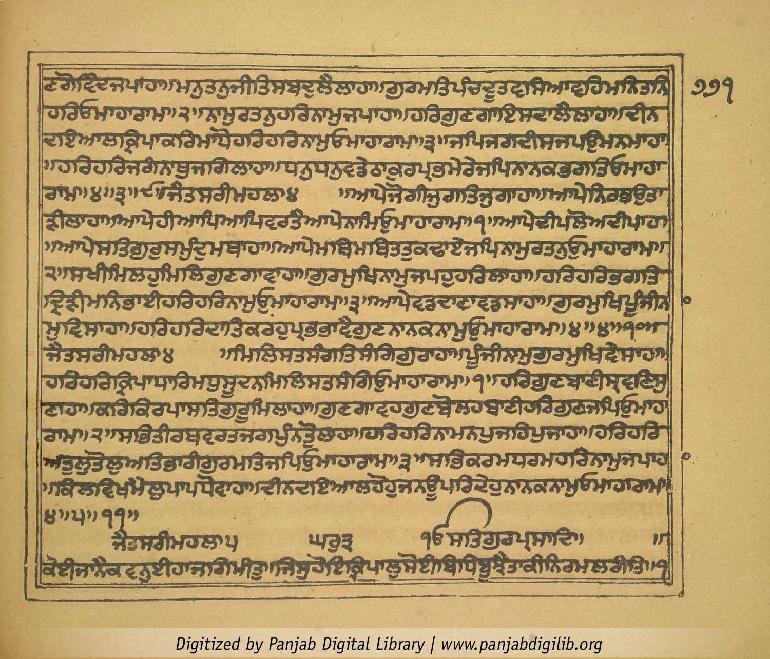 ੭੭੧
ਣਗੋਵਿੰਦਜਪਾਹਾ॥ਮਨੁਤਨੁਜੀਤਿਸਬਦੁਲੈਲਾਹਾ॥ਗੁਰਮਤਿਪੰਚਦੂਤਵਸਿਆਵਹਿਮਨਿਤਨਿ
ਹਰਿਓਮਾਹਾਰਾਮ॥੨॥ਨਾਮੁਰਤਨੁਹਰਿਨਾਮੁਜਪਾਹਾ॥ਹਰਿਗੁਣਗਾਇਸਦਾਲੈਲਾਹਾ॥ਦੀਨ
ਦਇਆਲਕ੍ਰਿਪਾਕਰਿਮਾਧੋਹਰਿਹਰਿਨਾਮੁਓਮਾਹਾਰਾਮ॥੩॥ਜਪਿਜਗਦੀਸਜਪਉਮਨਮਾਹਾ
॥ਹਰਿਹਰਿਜਗੰਨਾਥੁਜਗਿਲਾਹਾ॥ਧਨੁਧਨੁਵਡੇਠਾਕੁਰਪ੍ਰਭਮੇਰੇਜਪਿਨਾਨਕਭਗਤਿਓਮਾਹਾ
ਰਾਮ॥੪॥੩॥੯॥ਜੈਤਸਰੀਮਹਲਾ੪ ॥ਆਪੇਜੋਗੀਜੁਗਤਿਜੁਗਾਹਾ॥ਆਪੇਨਿਰਭਉਤਾ
ੜੀਲਾਹਾ॥ਆਪੇਹੀਆਪਿਆਪਿਵਰਤੈਆਪੇਨਾਮਿਓੁਮਾਹਾਰਾਮ॥੧॥ਆਪੇਦੀਪਲੋਅਦੀਪਾਹਾ
॥ਆਪੇਸਤਿਗੁਰੁਸਮੁੰਦੁਮਥਾਹਾ॥ਆਪੇਮਥਿਮਥਿਤਤੁਕਢਾਏਜਪਿਨਾਮੁਰਤਨੁਓੁਮਾਹਾਰਾਮ॥
੨॥ਸਖੀਮਿਲਹੁਮਿਲਿਗੁਣਗਾਵਾਹਾ॥ਗੁਰਮੁਖਿਨਾਮੁਜਪਹੁਹਰਿਲਾਹਾ॥ਹਰਿਹਰਿਭਗਤਿ
ਦ੍ਰਿੜੀਮਨਿਭਾਈਹਰਿਹਰਿਨਾਮੁਓੁਮਾਹਾਰਾਮ॥੩॥ਆਪੇਵਡਦਾਣਾਵਡਸਾਹਾ॥ਗੁਰਮੁਖਿਪੂੰਜੀਨਾ
ਮੁਵਿਸਾਹਾ॥ਹਰਿਹਰਿਦਾਤਿਕਰਹੁਪ੍ਰਭਭਾਵੈਗੁਣਨਾਨਕਨਾਮੁਓੁਮਾਹਾਰਾਮ॥੪॥੪॥੧੦॥
ਜੈਤਸਰੀਮਹਲਾ੪ ॥ਮਿਲਿਸਤਸੰਗਤਿਸੰਗਿਗੁਰਾਹਾ॥ਪੂੰਜੀਨਾਮੁਗੁਰਮੁਖਿਵੇਸਾਹਾ॥
ਹਰਿਹਰਿਕ੍ਰਿਪਾਧਾਰਿਮਧੁਸੂਦਨਮਿਲਿਸਤਸੰਗਿਓਮਾਹਾਰਾਮ॥੧॥ਹਰਿਗੁਣਬਾਣੀਸ੍ਰਵਣਿਸੁ
ਣਾਹਾ॥ਕਰਿਕਿਰਪਾਸਤਿਗੁਰੂਮਿਲਾਹਾ॥ਗੁਣਗਾਵਹਗੁਣਬੋਲਹਬਾਣੀਹਰਿਗੁਣਜਪਿਓੁਮਾਹਾ
ਰਾਮ॥੨॥ਸਭਿਤੀਰਥਵਰਤਜਗਪੁੰਨਤੋੁਲਾਹਾ॥ਹਰਿਹਰਿਨਾਮਨਪੁਜਹਿਪੁਜਾਹਾ॥ਹਰਿਹਰਿ
ਅਤੁਲੁਤੋਲੁਅਤਿਭਾਰੀਗੁਰਮਤਿਜਪਿਓੁਮਾਹਾਰਾਮ॥੩॥ਸਭਿਕਰਮਧਰਮਹਰਿਨਾਮੁਜਪਾਹਾ
॥ਕਿਲਵਿਖਮੈਲੁਪਾਪਧੋਵਾਹਾ॥ਦੀਨਦਇਆਲਹੋਹੁਜਨਊਪਰਿਦੇਹੁਨਾਨਕਨਾਮੁਓੁਮਾਹਾਰਾਮ॥
੪॥੫॥੧੧॥
ਜੈਤਸਰੀਮਹਲਾ੫ ਘਰੁ੩ ੴਸਤਿਗੁਰਪ੍ਰਸਾਦਿ॥ ॥
ਕੋਈਜਾਨੈਕਵਨੁਈਹਾਜਗਿਮੀਤੁ॥ਜਿਸੁਹੋਇਕ੍ਰਿਪਾਲੁਸੋਈਬਿਧਿਬੂਝੈਤਾਕੀਨਿਰਮਲਰੀਤਿ॥੧
Digitized by Panjab Digital Library | www.panjabdigilib.org